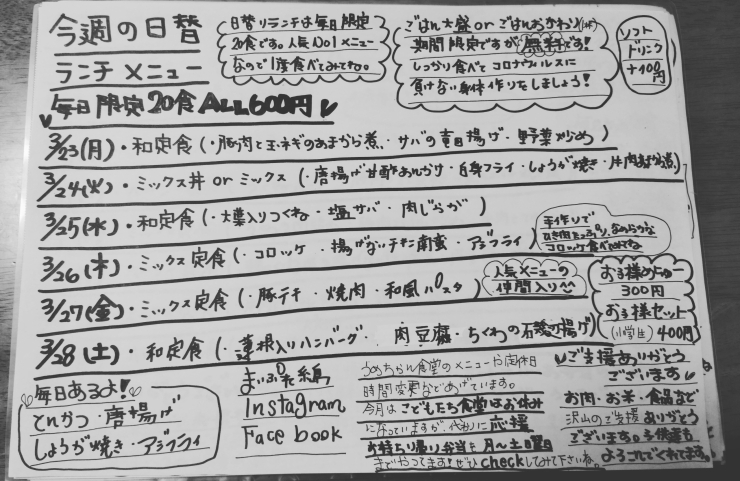 今週の日替
ランチメニュー
毎日限定20食ALL600円
日替りランチは毎日限定
20食です。人気No1メニュー
なので1度食べてみてね。
ごはん大盛orごはんおかわり
期間限定ですが無料です!
しっかり食べてコロナウィルスに
負けない身体作りをしましょう!
ソフト
ドリンク
+100円
3/23(月)・和定食(・豚肉と玉ネギのあまから煮・サバの竜田揚げ・野菜炒め)
3/24(火)・ミックス丼orミックス(・唐揚げ甘酢あんかけ・白身フライ・しょうが焼き・
3/25(水)・和定食(・大葉入りつくね・塩サバ・肉じゃが)
3/26(木)・ミックス定食(・コロッケ・揚げないチキン南蛮・アジフライ)
手作りで
ひき肉たっぷり、なめらかな
コロッケ食べてみてね
3/27(金)・ミックス定食(・豚テキ・焼肉・和風パスタ)
人気メニューの
仲間入り^^
3/28(土)・和定食(・蓮根入りハンバーグ・肉豆腐・ちくわの石垣揚げ)
お子様めにゅー
300円
お子様セット
(小学生)400円
毎日あるよ!
とんかつ・唐揚げ
しょうが焼き・アジフライ
Instagram
Facebook
うめちゃん食堂のメニューや定休日
時間変更などあげています。
今月はこどもたち食堂はお休み
になっていますが、代わりに応援
お持ち帰り弁当を月〜土曜日
までやってます!ぜひcheckしてみて下さいね。
ご支援ありがとう
ございます
お肉・お米・食品など
沢山のご支援ありがとう
ございます。子供達も
よろこんでくれてます。